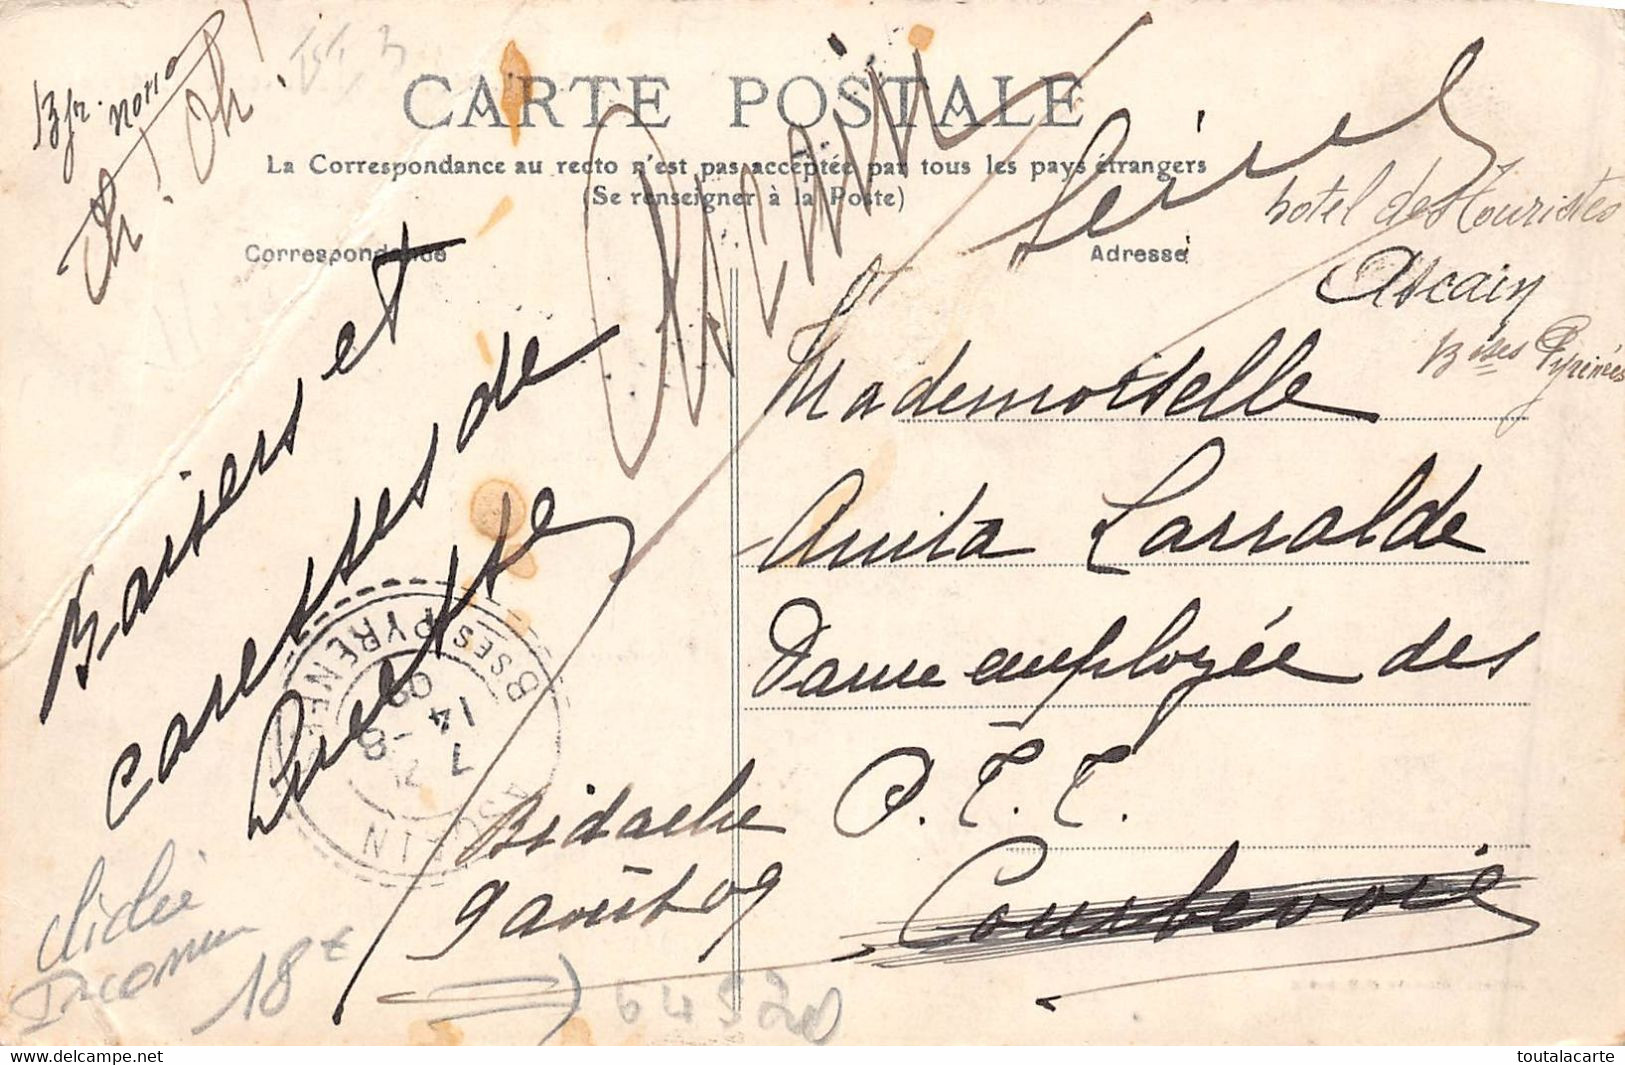 CARTE POSTALE
La Correspondance au recto n'est pas acceptée par tous les pays étrangers
(Se renseigner à la Poste)
Correspondance
Adresse
Baisers et
caresses de
Bidache
9 août 09
Mademoiselle
Anita Larralde
Dame employée des
P.T.T.
Courbevoie
hotel des Touristes
Ascain
Bses Pyrénées
ASCAIN
BSES PYRENEES
7
14 -8
09
clichée
Inconnu
18€
64520
www.delcampe.net
toutalacarte